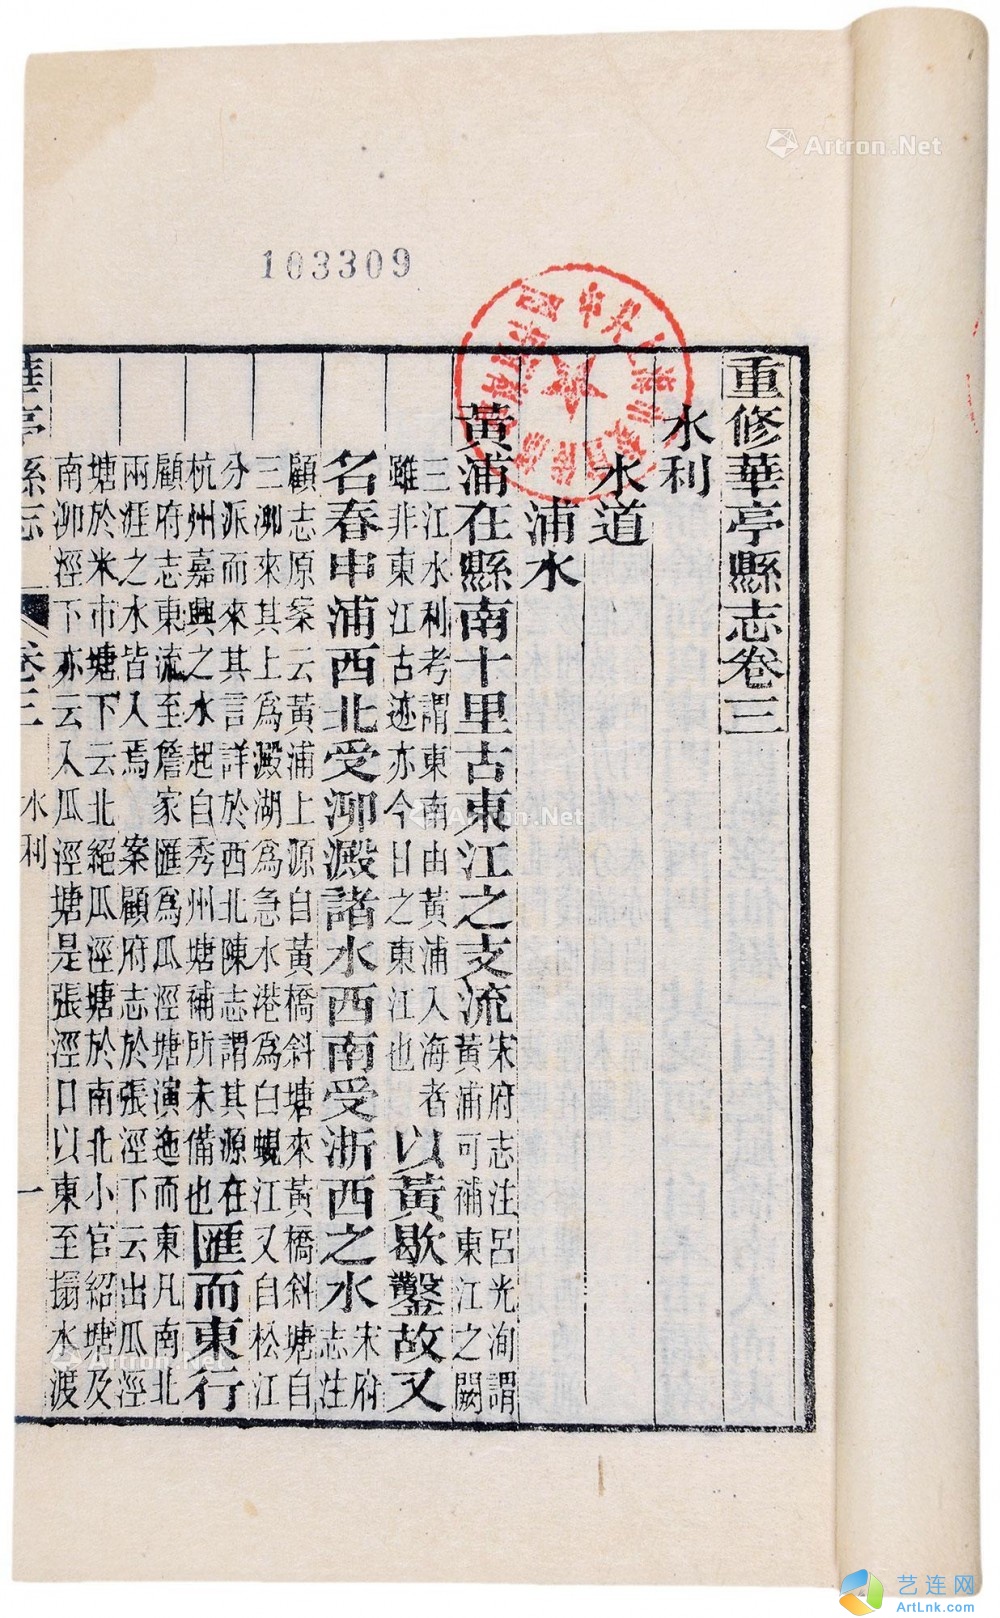 103309
重修華亭縣志卷三
水利
水道
浦水
黃浦在縣南十里古東江之支流宋府志注呂光洵謂
黃浦可補東江之闕
三江水利考謂東南由黃浦入海者
雖非東江古迹亦今日之東江也
以黃歇鑿故又
名春申浦西北受泖澱諸水西南受浙西之水宋府
志注
顧志原案云黃浦上源自黃橋斜塘來黃橋斜塘自
三泖來其上爲澱湖爲急水港爲白蜆江又自松江
分派而來其言詳於西北陳志謂其源在
杭州嘉興之水起自秀州塘補所未備也
匯而東行
顧府志東流至詹家匯爲瓜涇塘演迤而東凡南北
兩涯之水皆入焉 案顧府志於張涇下云出瓜涇
塘於米市塘下云北絕瓜涇塘於南北小官紹塘及
南泖涇下亦云入瓜涇塘是張涇口以東至搨水渡
華亭縣志 卷三 水利 一
Artron.Net
Artron.Net
Artron.Net
艺连网
ArtLnk.com